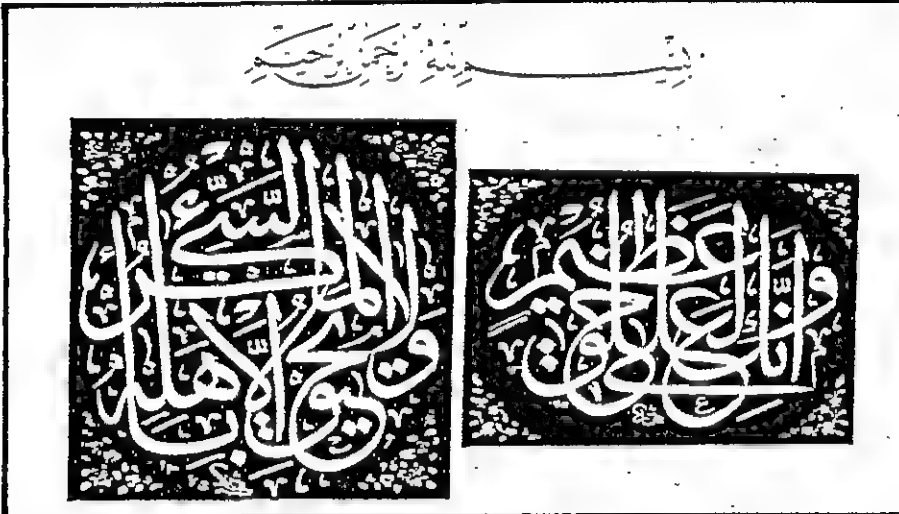 بسم الله الرحمن الرحيم
وإنك لعلى خلق عظيم
ولا يحيق المكر السيئ إلا بأهله